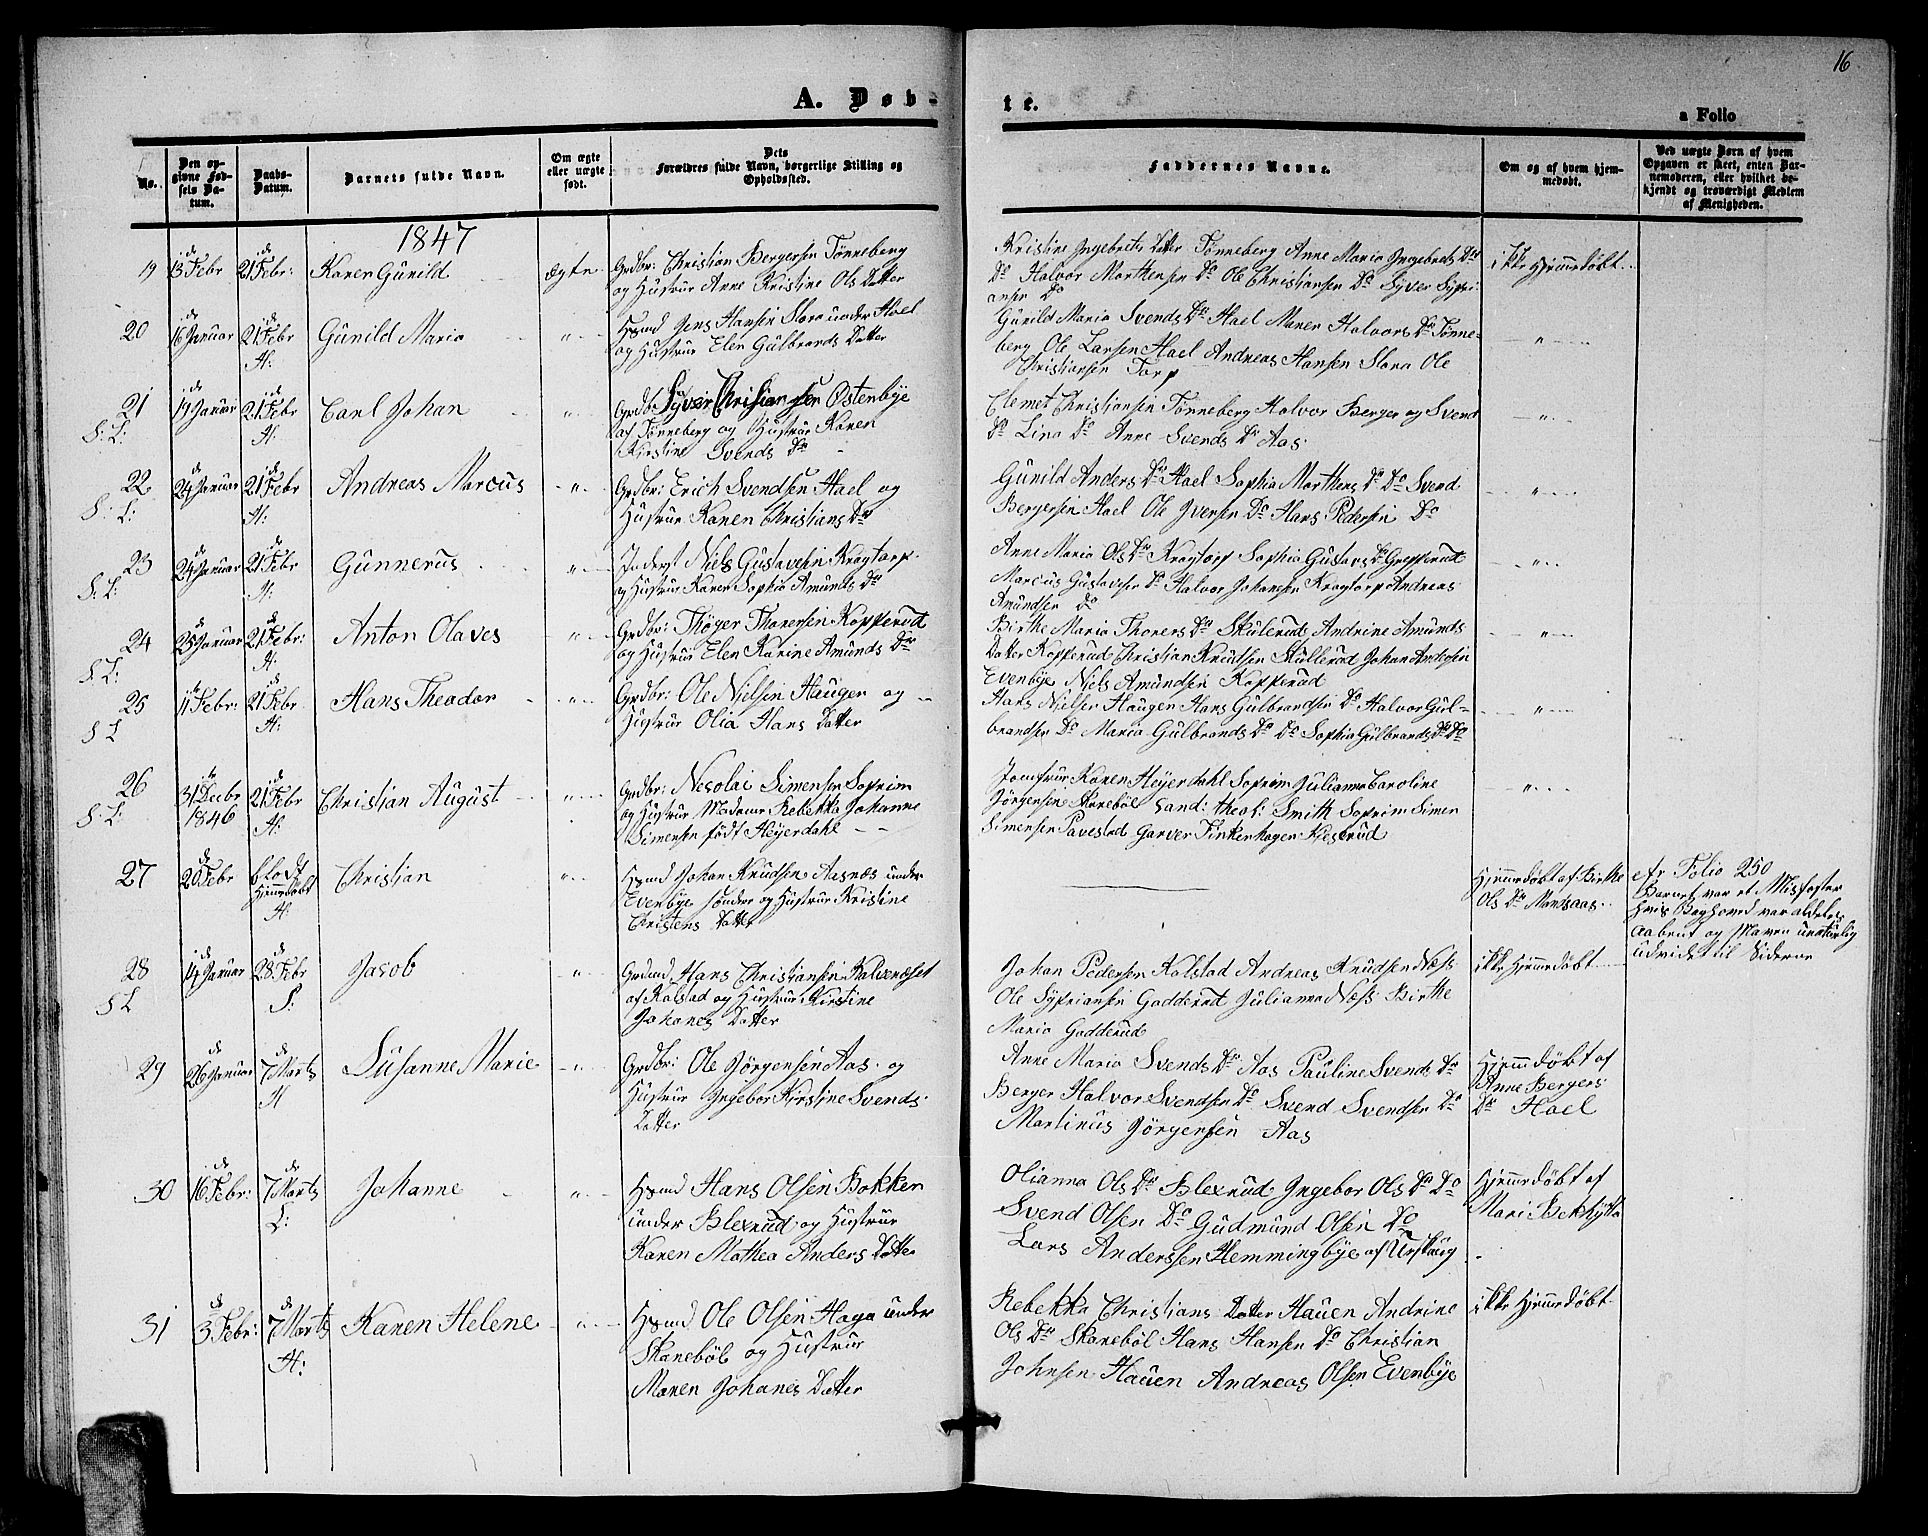 16
A. Døb-
te.
a Folio
No.
Den op-
givne Fød-
sels Da-
tum.
Daabs-
Datum.
Barnets fulde Navn.
Om ægte
eller uægte
født.
Dets
Forældres fulde Navn, borgerlige Stilling og
Opholdssted.
Faddernes Navne.
Om og af hvem hjem-
medøbt.
Ved uægte Børn af hvem
Opgaven er skeet, enten Bar-
nemoderen, eller hvilket be-
kjendt og troværdigt Medlem
af Menigheden.
1847
19 d 13 Febr d 21 Febr: Karen Gunild ægte Grdbr: Christian Bergersen Tønneberg
og Hustrue Anne Kristine Ols Datter
Kristine Ingebrets Datter Tønneberg Anne Maria Ingebrets Dtr
Do Halvor Morthensen Do Ole Christiansen Do Syver Sypri-
ansen Do
ikke Hjemedøbt
20 d 16 Januar d 21 Febr H: Gunild Maria " Hsmd Jens Hansen Slora under Hoel
og Hustrue Elen Gulbrands Datter
Gunild Maria Svends Dtr Hael Maren Halvors Dtr Tønne-
berg Ole Larsen Hael Andreas Hansen Slora Ole
Christiansen Torp
"
21 S: L: d 19 Januar d 21 Febr H: Carl Johan " Grdbr: Syver Christiansen Østenbye
af Tønneberg og Hustrue Karen
Kirstine Svends Dtr
Clemet Christiansen Tønneberg Halvor Berger og Svend
Do Lina Do Anne Svends Dr Aas
"
22 S: L: d 24 Januar d 21 Febr H: Andreas Marcus " Grdbr: Erich Svendsen Hael og
Hustrue Karen Christians Dtr
Gunild Anders Dtr Hael Sophia Morthens Dr Do Svend
Bergersen Hael Ole Iversen Do Hans Pedersen Do
"
23 S: L: d 24 Januar d 21 Febr H: Gunnerus " Inderst Niels Gustavsen Krogtorp
og Hustrue Karen Sophia Amunds Dr
Anne Maria Ols Dtr Krogtorp Sophia Gustavs Dr Grepperud
Marcus Gustavsen Do Halvor Johansen Krogtorp Andreas
Amundsen Do
"
24 S: L: d 25 Januar d 21 Febr: H: Anton Olaves " Grdbr: Thøger Thoresen Kopperud
og Hustrue Elen Karine Amunds Dtr
Birthe Maria Thorers Dtr Skulerud Andrine Amunds
Datter Kopperud Christian Knudsen Skullerud Johan Andersen
Evenbye Niels Amundsen Kopperud
"
25 S L d 11 Febr: d 21 Febr H: Hans Theodor " Grdbr: Ole Nielsen Haugen og
Hustrue Olia Hans Datter
Hans Nielsen Haugen Hans Gulbrandsen Do Halvor Gul-
brandsen Do Maria Gulbrands Dr Do Sophia Gulbrands Dr Do
"
26 S: L: d 31 Decbr 1846 d 21 Febr H: Christian August " Grdbr: Nicolai Simensen Soprim
og Hustrue Madame Rebekka Johanne
Simensen født Heyerdahl
Jomfrue Karen Heyerdahl Soprim Julianna Caroline
Jørgensen Skanebøl Cand: theol: Smith Soprim Simen
Simensen Pavestad Garver Tinkenhagen Kjesrud
"
27 d 20 Febr Hjemedøbt H: Christian " Hsmd Johan Knudsen Aasnæs under
Evenbye søndre og Hustrue Kristine
Christens Datter
Hjemedøbt af Birthe
Ols Dtr Mandsaas
cfr Folio 250
Barnet var et Misfoster
hvis Baghoved var aldeles
aabent og Maven unaturlig
udvidet til Siderne
28 S L d 14 Januar d 28 Febr S: Jacob " Grdmd Hans Christiansen Kalvenæset
af Kolstad og Hustrue Kirstine
Johanes Datter
Johan Pedersen Kolstad Andreas Knudsen Næss
Ole Sypriansen Gadderud Julianna Næss Birthe
Maria Gadderud
ikke Hjemedøbt
29 d 26 Januar d 7 Marts H Susanne Marie " Grdbr: Ole Jørgensen Aas og
Hustrue Ingebor Kirstine Svends
Datter
Anne Maria Svends Dtr Aas Pauline Svends Dr
Berger Halvor Svendsen Do Svend Svendsen Do
Martinus Jørgensen Aas
Hjemmedøbt af
Anne Bergers
Dr Hael
30 d 16 Febr: d 7 Marts L: Johanne " Hsmd Hans Olsen Bakken
under Blexrud og Hustrue
Karen Mathea Anders Datter
Olianna Ols Dtr Blexrud Ingebor Ols Dr Do
Svend Olsen Do Gudmund Olsen Do
Lars Anderssen Hemmingbye af Urskoug
Hjemedøbt af
Mari Bekhytta
31 d 3 Febr: d 7 Marts H: Karen Helene " Hsmd Ole Olsen Haga under
Skanebøl og Hustrue
Maren Johanes Datter
Rebekka Christians Datter Hauen Andrine
Ols Dtr Skanebøl Hans Hansen Do Christian
Johnsen Hauen Andreas Olsen Evenbye
ikke Hjemedøbt